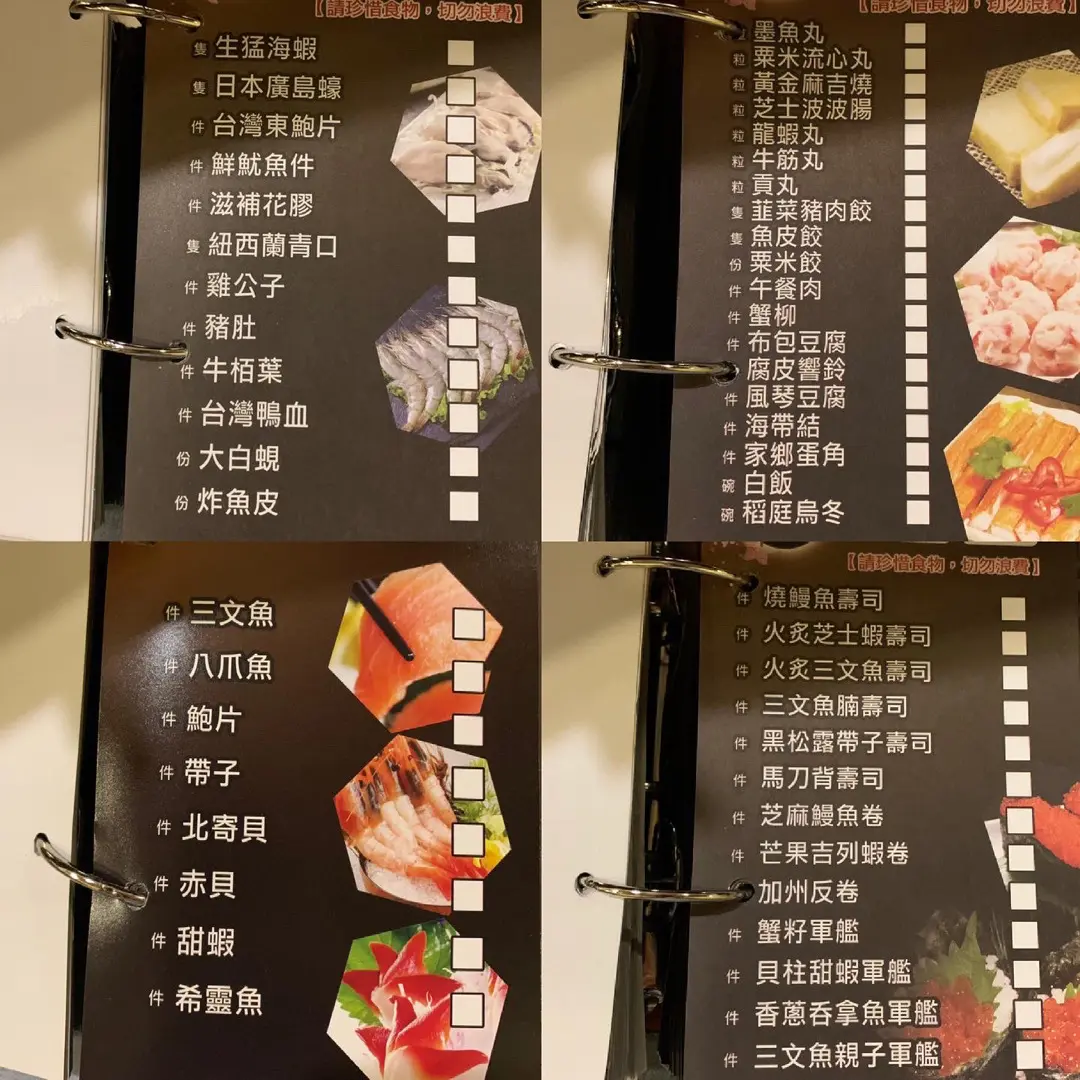 【請珍惜食物，切勿浪費】
隻 生猛海蝦
隻 日本廣島蠔
件 台灣東鮑片
件 鮮魷魚件
件 滋補花膠
隻 紐西蘭青口
件 雞公子
件 豬肚
件 牛栢葉
件 台灣鴨血
份 大白蜆
份 炸魚皮
【請珍惜食物，切勿浪費】
墨魚丸
粒 粟米流心丸
粒 黃金麻吉燒
粒 芝士波波腸
粒 龍蝦丸
粒 牛筋丸
粒 貢丸
隻 韮菜豬肉餃
隻 魚皮餃
份 粟米餃
件 午餐肉
件 蟹柳
件 布包豆腐
腐皮響鈴
件 風琴豆腐
件 海帶結
件 家鄉蛋角
碗 白飯
碗 稻庭烏冬
件 三文魚
件 八爪魚
件 鮑片
件 帶子
件 北寄貝
件 赤貝
件 甜蝦
件 希靈魚
【請珍惜食物，切勿浪費】
件 燒鰻魚壽司
件 火炙芝士蝦壽司
件 火炙三文魚壽司
件 三文魚腩壽司
件 黑松露帶子壽司
件 馬刀背壽司
件 芝麻鰻魚卷
件 芒果吉列蝦卷
加州反卷
件 蟹籽軍艦
件 貝柱甜蝦軍艦
件 香蔥吞拿魚軍艦
件 三文魚親子軍艦